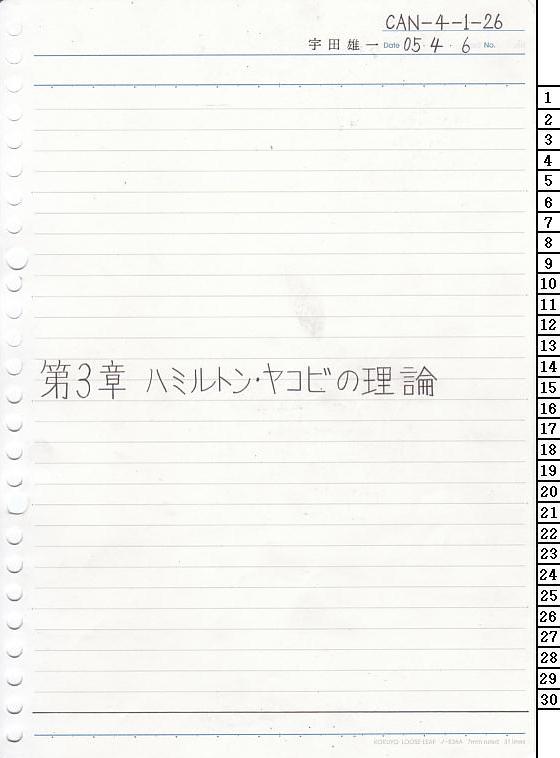 CAN-4-1-26
宇田雄一 Date 05・4・6 No.
第3章 ハミルトン・ヤコビの理論
1
2
3
4
5
6
7
8
9
10
11
12
13
14
15
16
17
18
19
20
21
22
23
24
25
26
27
28
29
30
KOKUYO LOOSE-LEAF ノ-836A 7mm ruled 31 lines